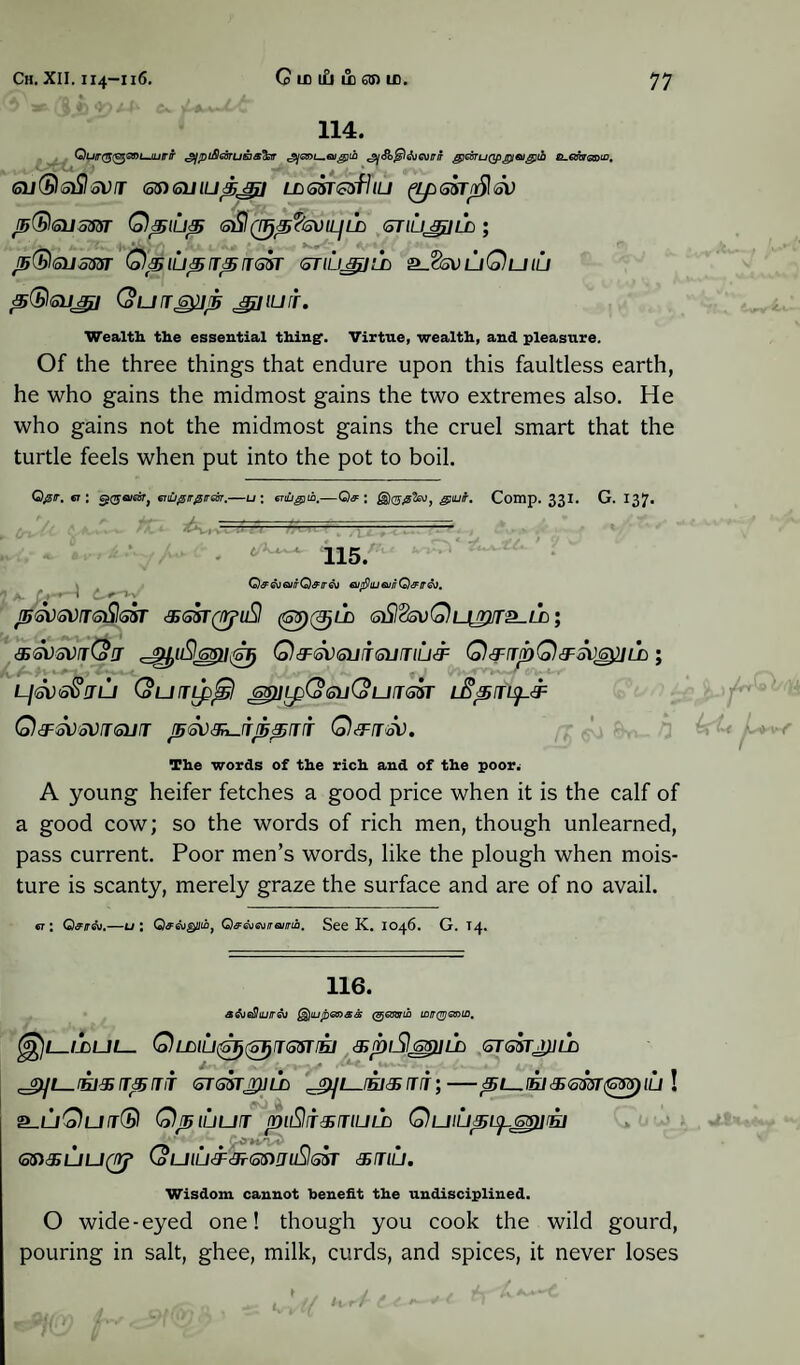 CH. XII. 114–116. மெய்ம்மை. 77
114.
பொருளுடையார் அறமின்பங்களை அடைவதும் அஃதில்லவர் துன்பமுறுவதும் உண்மை.
வடுவிலா வையத்து மன்னிய மூன்றில்
நடுவண தெய்த விருதலையும் எய்தும்;
நடுவண தெய்தாதான் எய்தும் உலைப்பெய்
தடுவது போலுந் துயர்.
Wealth the essential thing. Virtue, wealth, and pleasure.
Of the three things that endure upon this faultless earth,
he who gains the midmost gains the two extremes also. He
who gains not the midmost gains the cruel smart that the
turtle feels when put into the pot to boil.
தொ. எ : ஒருவன், எய்தாதான்.—ப : எய்தும்.—செ : இருதலை, துயர். Comp. 331. G. 137.
115.
செல்வர்சொல் வறியவர்சொல்.
நல்லாவின் கன்றாயின் நாகும் விலைபெறூஉம்;
கல்லாரே ஆயினுஞ் செல்வர்வாய்ச் சொற்செல்லும்;
புல்லீரப் போழ்தி னுழவேபோன் மீதாடிச்
செல்லாவா நல்கூர்ந்தார் சொல்.
The words of the rich and of the poor.
A young heifer fetches a good price when it is the calf of
a good cow; so the words of rich men, though unlearned,
pass current. Poor men's words, like the plough when mois-
ture is scanty, merely graze the surface and are of no avail.
எ : சொல்.—ப : செல்லும், செல்லாவாம். See K. 1046. G. 14.
116.
கல்வியால் இயற்கைக் குணம் மாறாமை.
இடம்பட மெய்ஞ்ஞானங் கற்பினும் என்றும்
அடங்காதார் என்றும் அடங்கார்;—தடங்கண்ணாய்!
உப்பொடு நெய்பால் தயிர்காயம் பெய்தடினுங்
கைப்பறா பேய்ச்சுரையின் காய்.
Wisdom cannot benefit the undisciplined.
O wide-eyed one! though you cook the wild gourd,
pouring in salt, ghee, milk, curds, and spices, it never loses